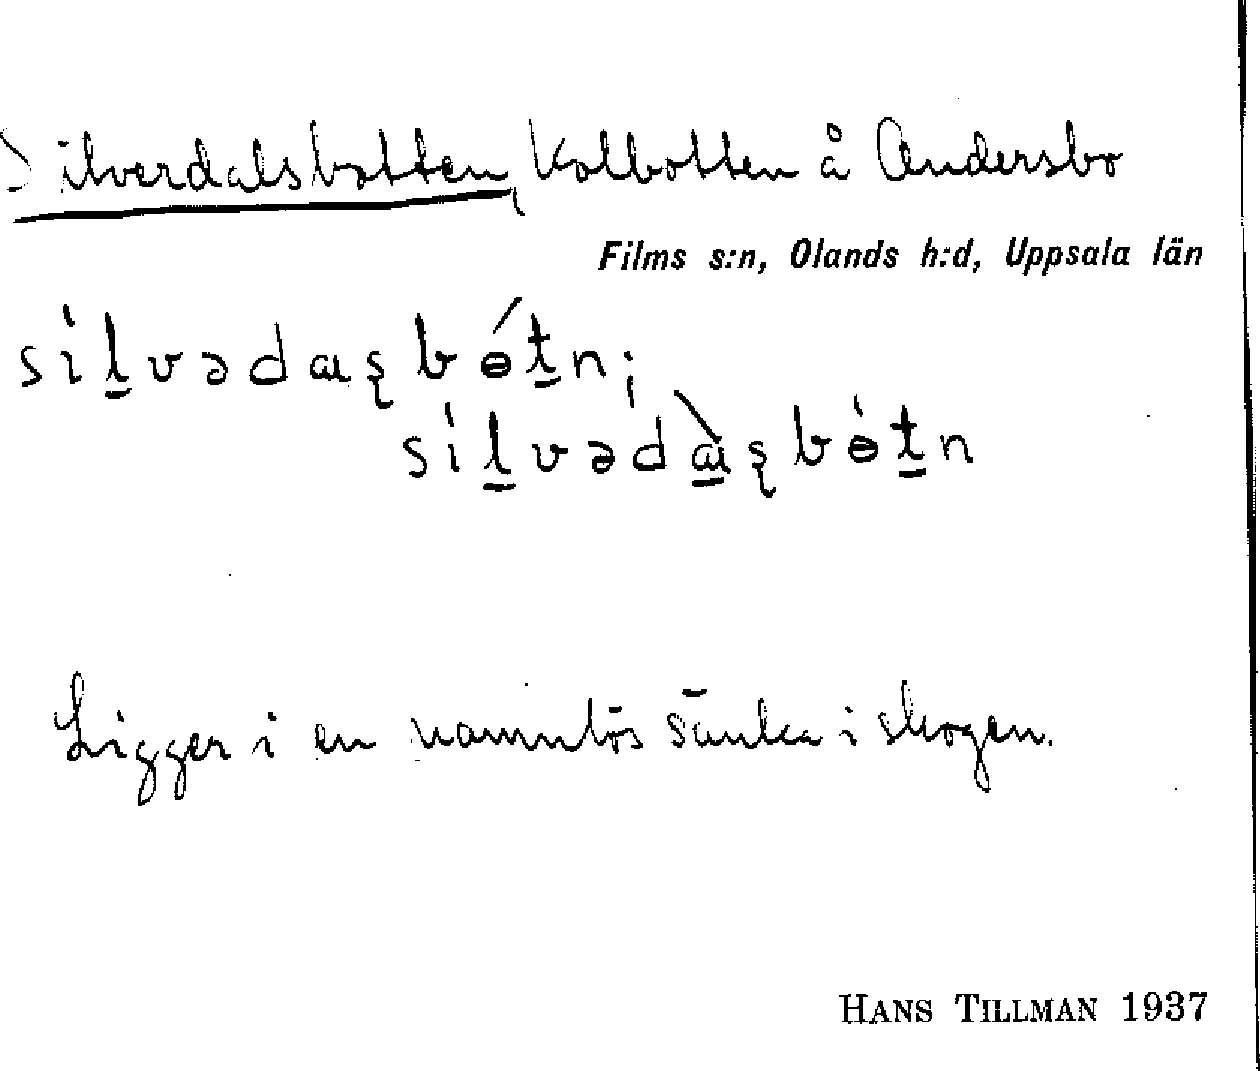 Silverdalsbotten, Kolbotten å Andersbo
Films s:n, Olands h:d, Uppsala län
sil̠vədaʂbɵ́t̠n;
sil̠vədà̠ʂbɵ̀t̠n
Ligger i en namnlös sänka i skogen.
HANS TILLMAN 1937